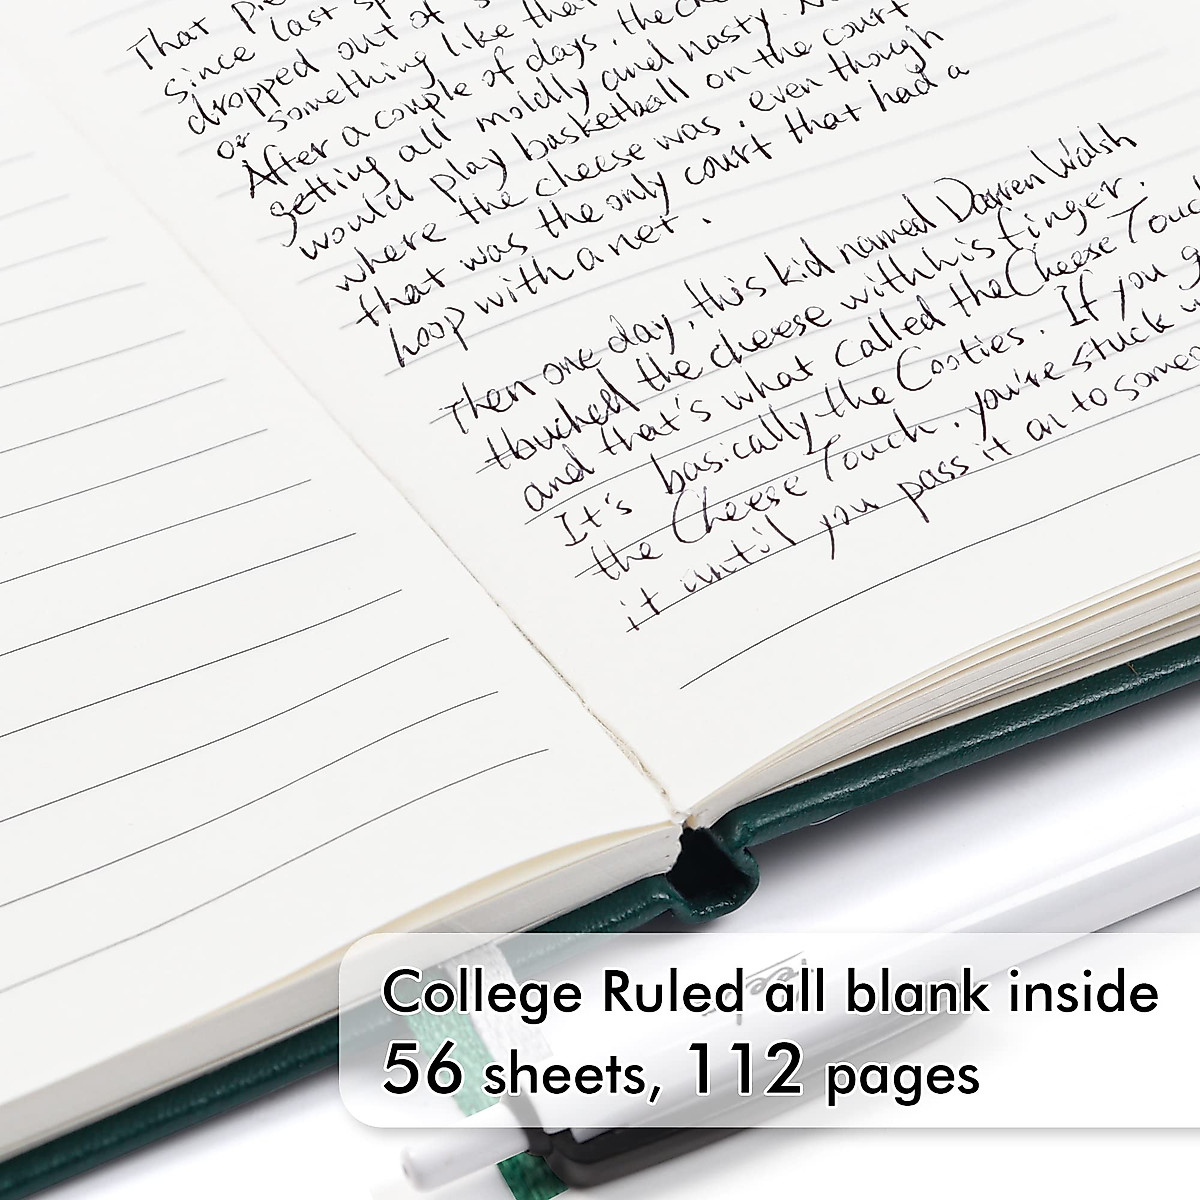 That pie
since last sp
dropped out of s
or something like that
After a couple of days, the che
getting all moldly and nasty. N
would play basketball on the court
where the cheese was, even though
that was the only court that had a
hoop with a net.
Then one day, this kid named Darren Walsh
thouched the cheese with his finger.
and that's what called the Cheese Touc
It's basically the Cooties. If you g
the Cheese Touch, you're stuck w
it until you pass it on to someo
College Ruled all blank inside
56 sheets, 112 pages